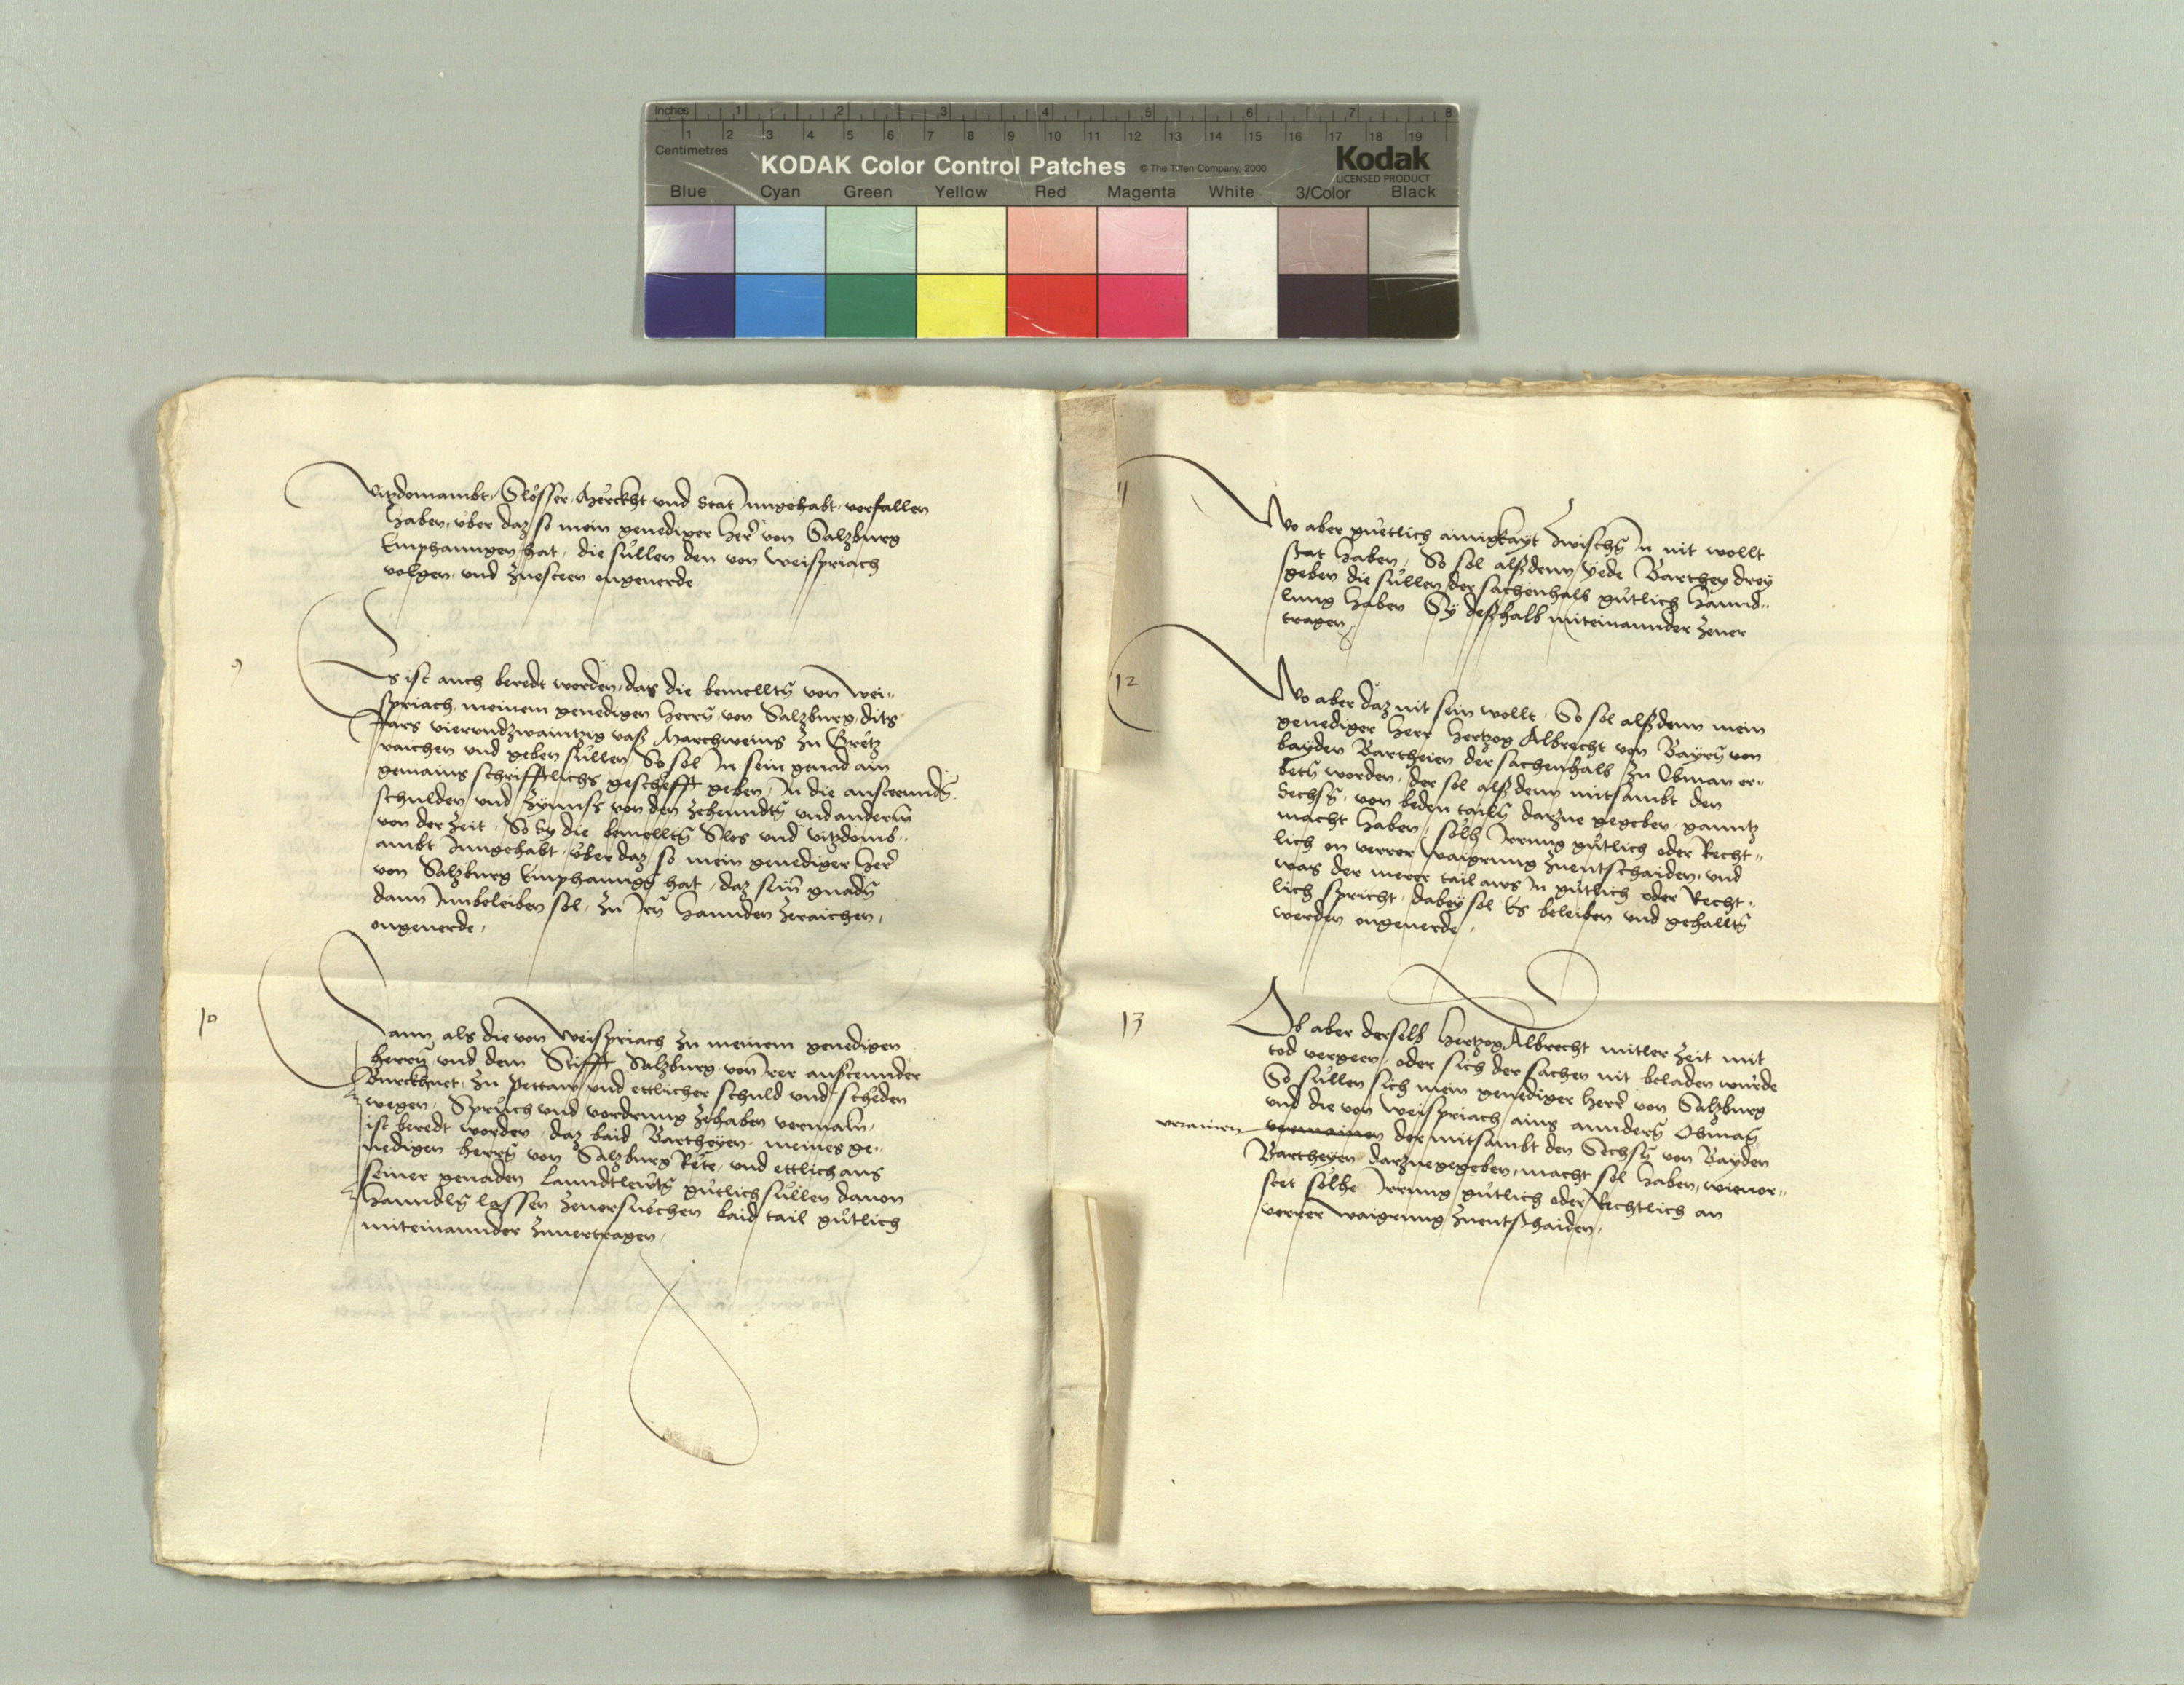 Inches 1 2 3 4 5 6 7 8
1 2 3 4 5 6 7 8 9 10 11 12 13 14 15 16 17 18 19
Centimetres
KODAK Color Control Patches © The Tiffen Company, 2000 Kodak
LICENSED PRODUCT
Blue Cyan Green Yellow Red Magenta White 3/Color Black
vitzdomambt, Slösser, Merckht und Stat Inngehabt, verfallen
haben, über daz so mein genediger Herr von Salzburg
Emphanngen hat, die süllen den von Weispriach
volgen, und zuesteen ongeuerde
9
Es ist auch beredt worden, das die bemellten von Wei„
spriach, meinem genedigen Herrn von Salzburg, dits
Jars vierundzwaintzig vasß Marchweins zu Grëtz
raichen und geben süllen, So sol In sein genad ain
gemains schrifftlichs geschëfft geben, In die austeennden
schulden und Zynnse von den Zehenndten und anderm
von der Zeit, So Sy die bemellten Slos und vitzdomb„
ambt Inngehabt, über daz so mein genediger Herr
von Salzburg Emphanngen hat, daz sein gnaden
dann Innbeleiben sol, zu Irn hannden zeraichen,
ongeuerde,
10
Dann als die von Weispriach zu meinem genedigen
Herrn und dem Stifft Salzburg von Irer austeunder
Burckhuet, zu Pettaw und ettlicher schuld und schëden
wegen, Sprüch und vordrung zehaben vermain,
ist beredt worden, daz baid Bartheyen, meines ge„
nedigen Herrn von Salzburg Rëte, und ettlich aus
seiner genaden Lanndtlewten gütlich süllen dauon
hanndln lassen zeuersuechen baid tail gütlich
miteinannder zuuertragen,
11
Wo aber guetlich ainigkayt zwischen In nit wollt
stat haben, So sol alßdenn yede Barthey drey
geben die süllen der sachenhalb gütlich hannd„
lung haben Sy deßhalb miteinannder zeuer
tragen,
12
Wo aber daz nit sein wollt, So sol alßdann mein
genediger Herr Hertzog Albrecht von Bayrn von
bayden Bartheien der sachenhalb zu Obman er„
beten werden, der sol alßdenn mitsambt den
Sechsen, von beden tailen darzue gegeben, ganntz
macht haben, solh Irrung gütlich oder Recht„
lich on verrer waigrung zuentschaiden, und
was der merer tail aws In gütlich oder Recht„
lich spricht, dabey sol Es beleiben und gehallten
werden ongeuerde,
13
Ob aber derselb Hertzog Albrecht mitler Zeit mit
tod vergeen, oder sich der sachen nit beladen wurde
So süllen sich mein genediger Herr von Salzburg
und die von Weispriach ains anndern Obman
verainen vermainen der mitsambt den Sechsen von bayden
Bartheyen darzuegegeben, macht sol haben, wieuor„
stet solhe Irrung gütlich oder Rechtlich an
verrer waigrung zuentschaiden,